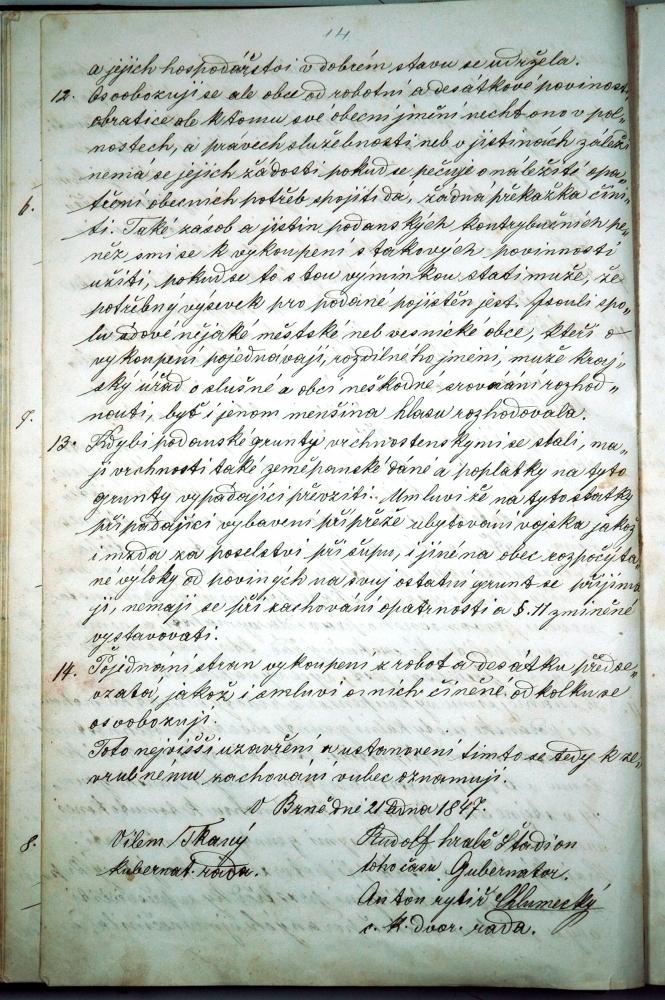 14
a jejich hospodářstvi v dobrém stavu se udržela.
12. Osvobozuji se ale obce od robotní a desátkové povinosti
obratice ale k tomu své obecní jmění necht ono v pol„
nostech, a pravech služebnosti neb v jistinách záleži
nemá se jejich žádosti pokud se pečuje o náležiti opa„
6. tření obecnich potřeb spojiti dá, žádná překažka čini„
ti. Také zásob a jistin podanských kontrybučních pe„
něz smi se k vykoupení s takových povinností
užiti, pokud se to s tou vyminkou stati muže, že
potřebný vysevek pro podané pojistěn jest. Jsouli spo„
lu udové nějaké městské neb vesnické obce, kteři o
vykoupeni pojednavaji, rozdilného jmění, muže kraj„
ský úřad o slušné a obci neškodné srovnání rozhod„
9. nouti, byť i jenom menšina hlasu rozhodovala.
13. Kdybi podanské grunty vrchnostenskými se stali, ma„
ji vrchnosti také zeměpanské dáně a poplatky na tyto
grunty vypadajíci převziti. Umluvi že na tyto statky
připadajíci vybaveni přípřeže ubytování vojska jakož
i mzda za poselstvi při šupu, i jiné na obec rozpočýta„
né výloky od poviných na svuj ostatni grunt se přijima
ji, nemaji se při zachování opatrnosti a §. 11 zmíněné
vystavovati.
14. Pojednáni stran vykoupení z robot a desátku předse„
vzatá, jakož i smluvi o nich činěné od kolku se
osvobozuji.
Toto nejvišši uzavření a ustanoveni timto se tedy k ze„
vrubnému zachování vubec oznamuji.
V Brně dné 21 Unora 1847.
8. Vilem Tkaný Rudolf hrabě Stadion
kubernat. ráda. toho času Gubernator.
Anton rytíř Chlumecký
c. k. dvor. rada.